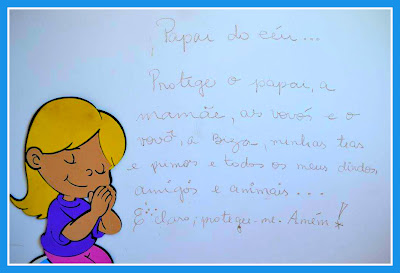 Papai do céu...
Protege o papai, a
mamãe, as vovós e o
vovô, a Biza, minhas tias
e primos e todos os meus dindos
amigos e animais...
E claro, protege-me. Amém!